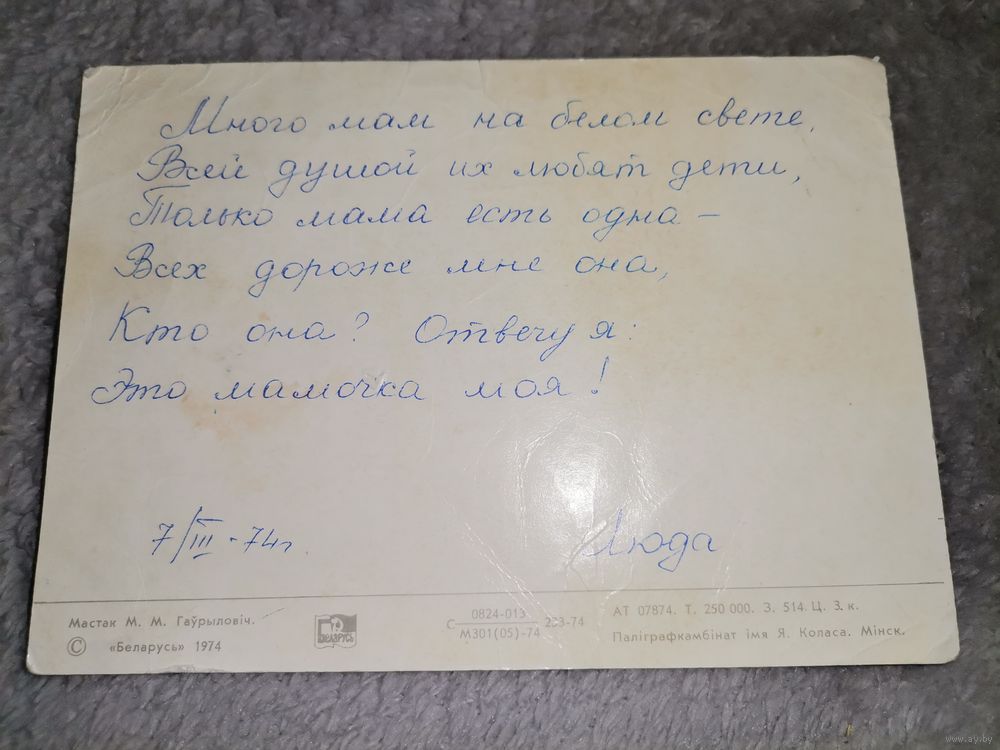 Много мам на белом свете,
Всей душой их любят дети,
Только мама есть одна –
Всех дороже мне она,
Кто она? Отвечу я:
Это мамочка моя!
7/III-74г Люда
Мастак М. М. Гаўрыловіч.
© «Беларусь» 1974
Беларусь
С 0824-013 / М301(05)-74 233-74
АТ 07874. Т. 250 000. З. 514. Ц. 3. к.
Паліграфкамбінат імя Я. Коласа. Мінск.
www.ay.by